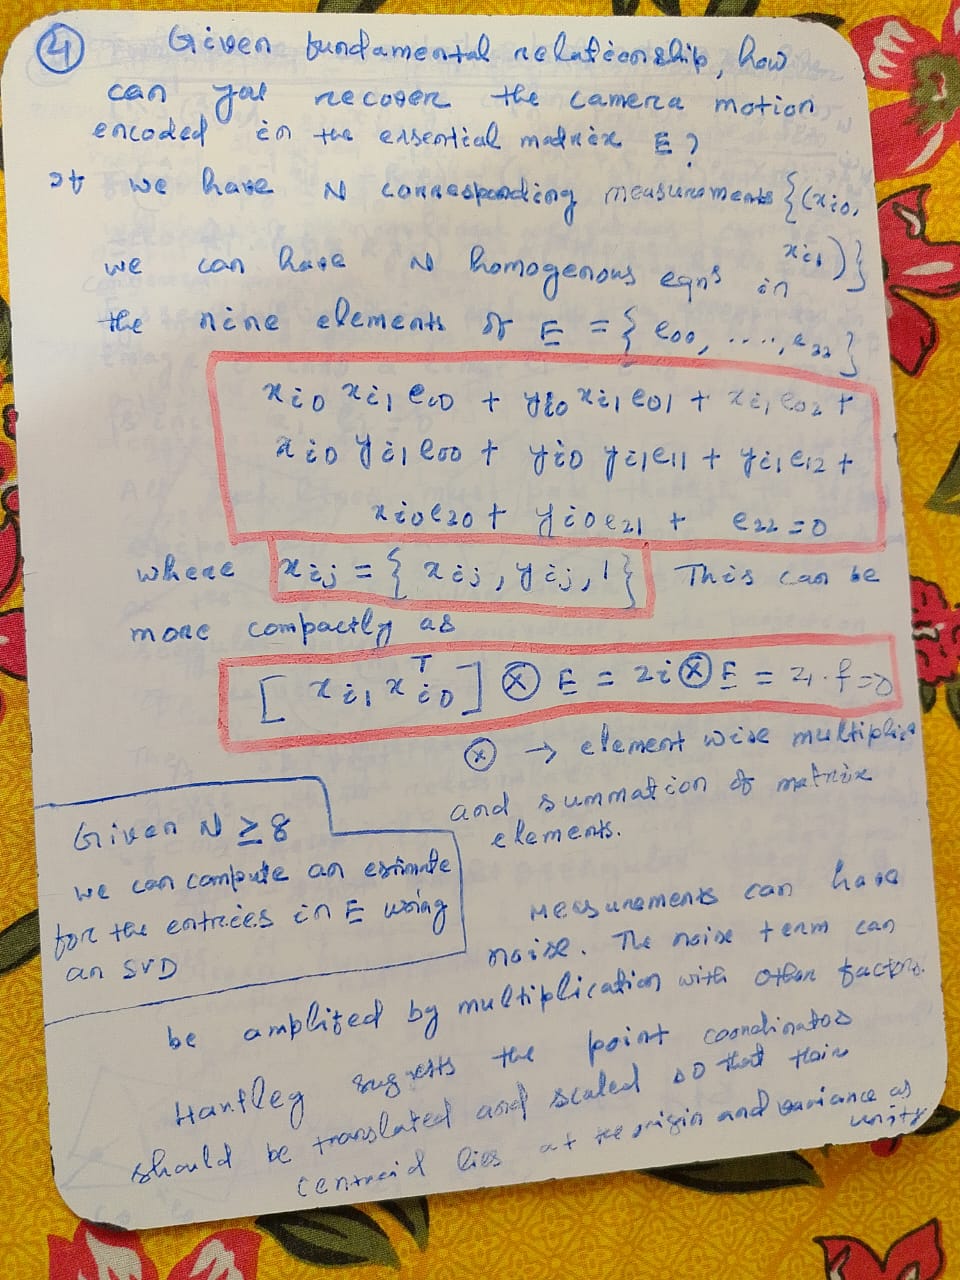 ④ Given fundamental relationship, how
can you recover the camera motion
encoded in the essential matrix E?
If we have N corresponding measurements {(xi0,
xi1)}
we can have N homogenous eqns in
the nine elements of E = {e00, ...., e22}
xi0 xi1 e00 + yi0 xi1 e01 + xi1 e02 +
xi0 yi1 e00 + yi0 yi1 e11 + yi1 e12 +
xi0 e20 + yi0 e21 + e22 = 0
where xij = { xij, yij, 1 } This can be
more compactly as
[ xi1 xi0^T ] ⊗ E = zi ⊗ E = zi . f = 0
⊗ → element wise multiplicat
and summation of matrix
elements.
Given N ≥ 8
we can compute an estimate
for the entries in E using
an SVD
Measurements can have
noise. The noise term can
be amplified by multiplication with other factors.
Hartley suggests the point coordinates
should be translated and scaled so that their
centroid lies at the origin and variance as
unity